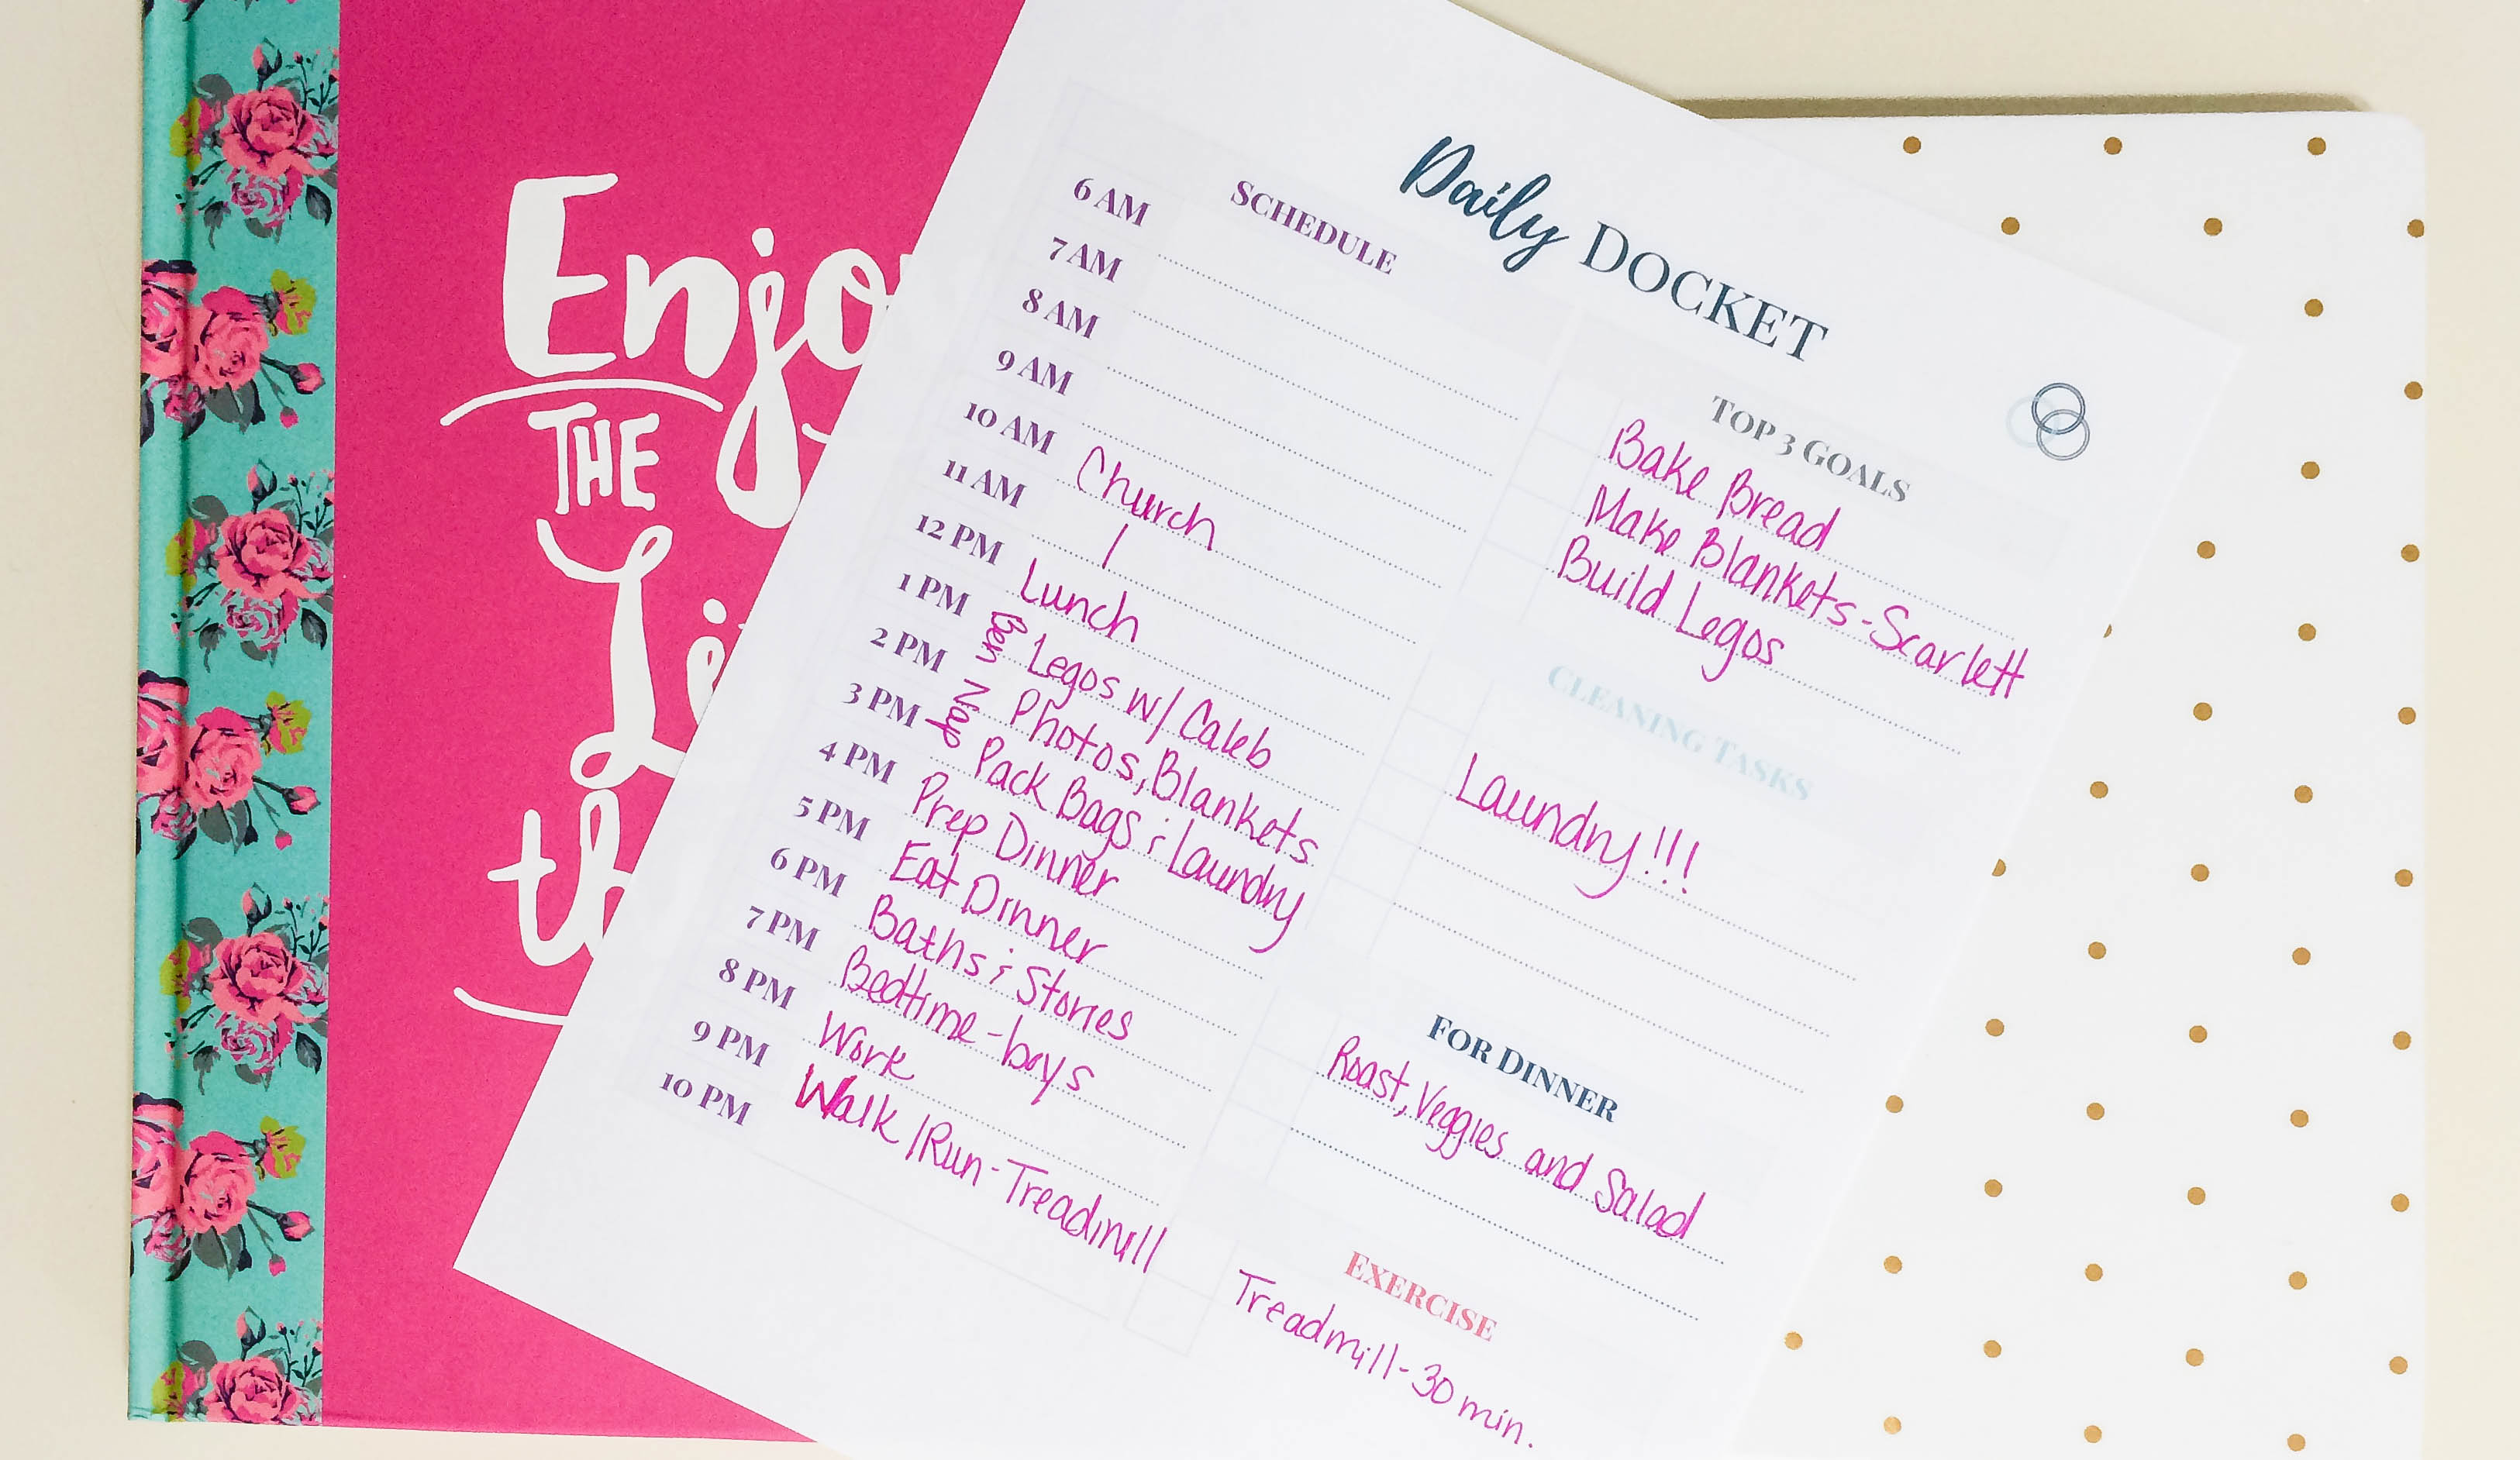 Enjo
THE
Li
th
Daily DOCKET
SCHEDULE
6 AM
7 AM
8 AM
9 AM
10 AM Church
11 AM |
12 PM Lunch
1 PM Legos w/ Caleb
2 PM Photos, Blankets
3 PM Pack Bags & Laundry
Ben Nap
4 PM Prep Dinner
5 PM Eat Dinner
6 PM Baths & Stories
7 PM Bedtime-boys
8 PM Work
9 PM Walk/Run-Treadmill
10 PM
TOP 3 GOALS
Bake Bread
Make Blankets-Scarlett
Build Legos
CLEANING TASKS
Laundry!!!
FOR DINNER
Roast, Veggies and Salad
EXERCISE
Treadmill-30 min.